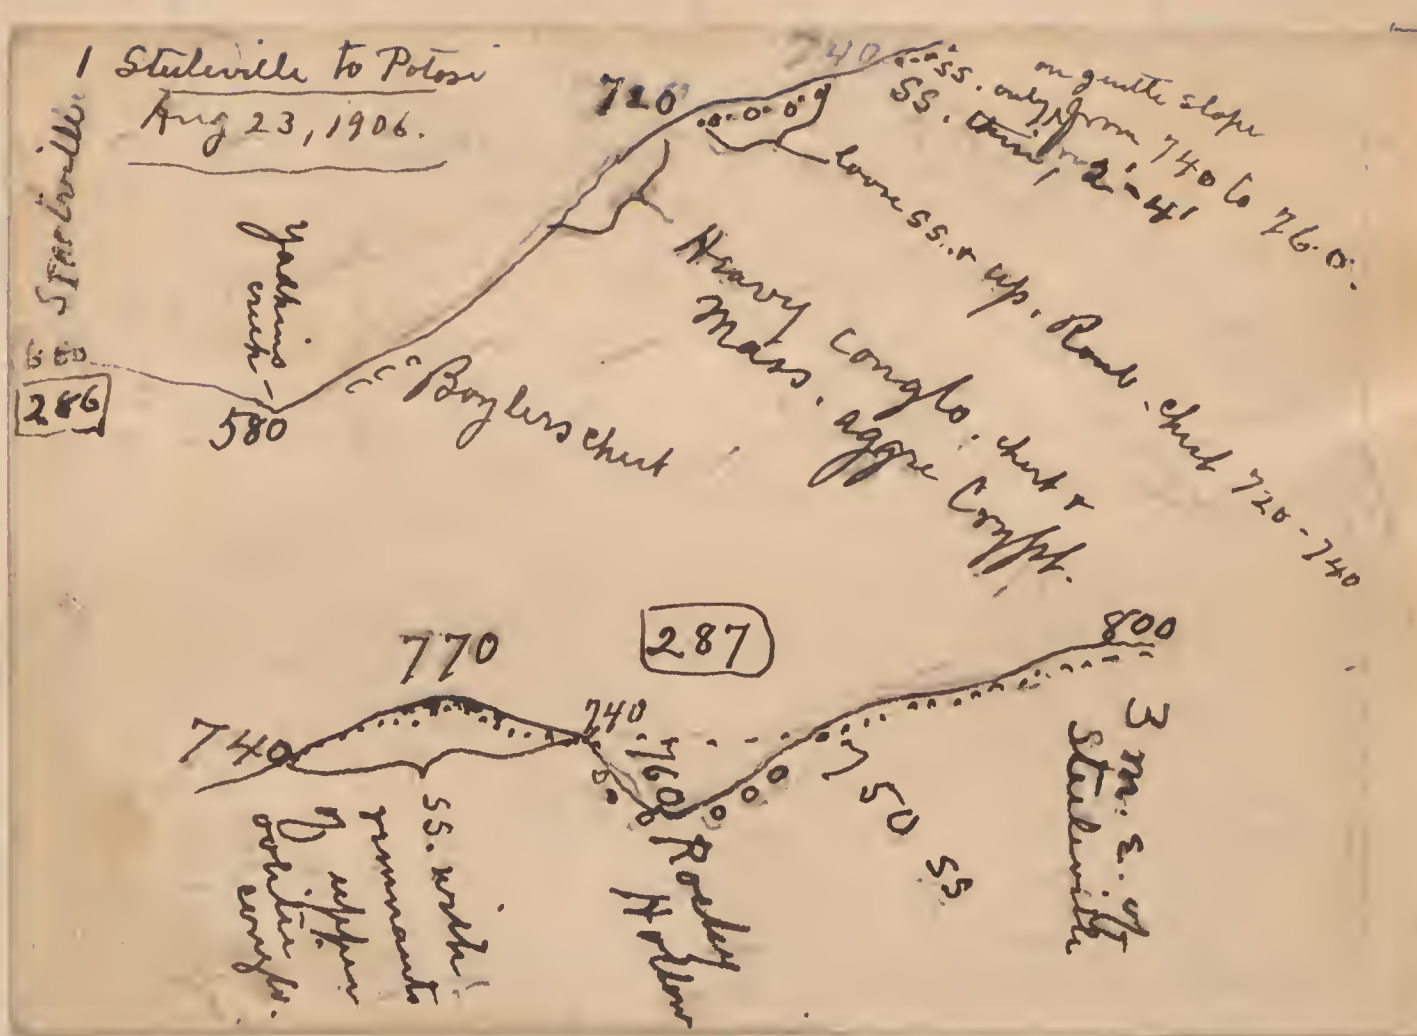 1 Steeleville to Potosi
Aug 23, 1906.
Steeleville
286
Yadkins
creek
580
Boylers chert
720
740
ss. only from 740 to 760.
on gentle slope
SS. thin, 2'-4'
loose ss. & up. Roub. chert 720-740
Heavy conglo. chert &
Mass. aggre Crypt.
287
740
770
740
760
Rocky
Hollow
750 SS
800
3 m. E. of
Steeleville
SS. with
remnants
of upper
oolitic
conglo.